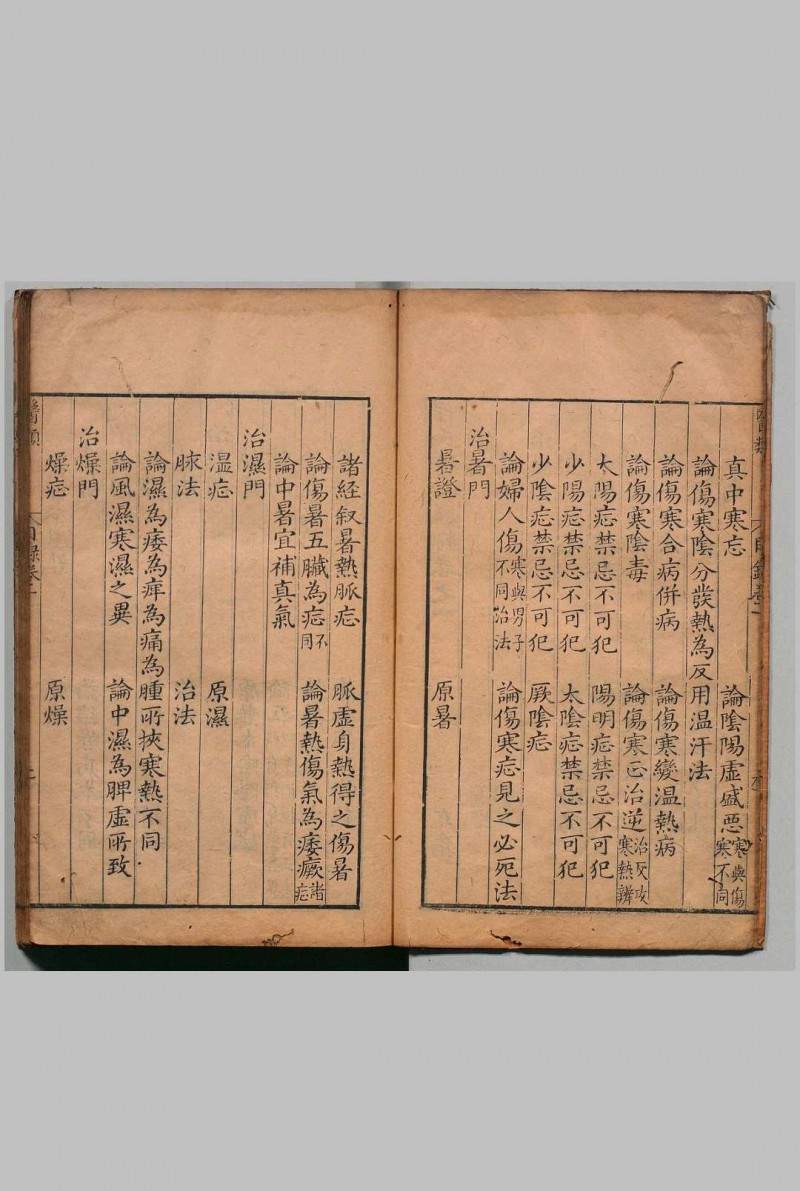 真中寒忘　論陰陽虛盛惡寒與傷寒不同
論傷寒陰分發熱為反用温汗法
論傷寒合病併病　論傷寒變温熱病
論傷寒陰毒　論傷寒正治逆治反攻寒熱辨
太陽症禁忌不可犯　陽明症禁忌不可犯
少陽症禁忌不可犯　太陰症禁忌不可犯
少陰症禁忌不可犯　厥陰症
論婦人傷寒與男子不同治法　論傷寒症見之必死法
治暑門
暑證　原暑
諸經叙暑熱脈症　脈虛身熱得之傷暑
論傷暑五臟為症不同　論暑熱傷氣為痿癥諸症
論中暑宜補真氣
治濕門
湿症　原濕
脉法　治法
論濕為痿為痺為痛為腫所挾寒熱不同
論風濕寒濕之異　論中濕為脾虛所致
治燥門
燥症　原燥
醫類　目録卷一